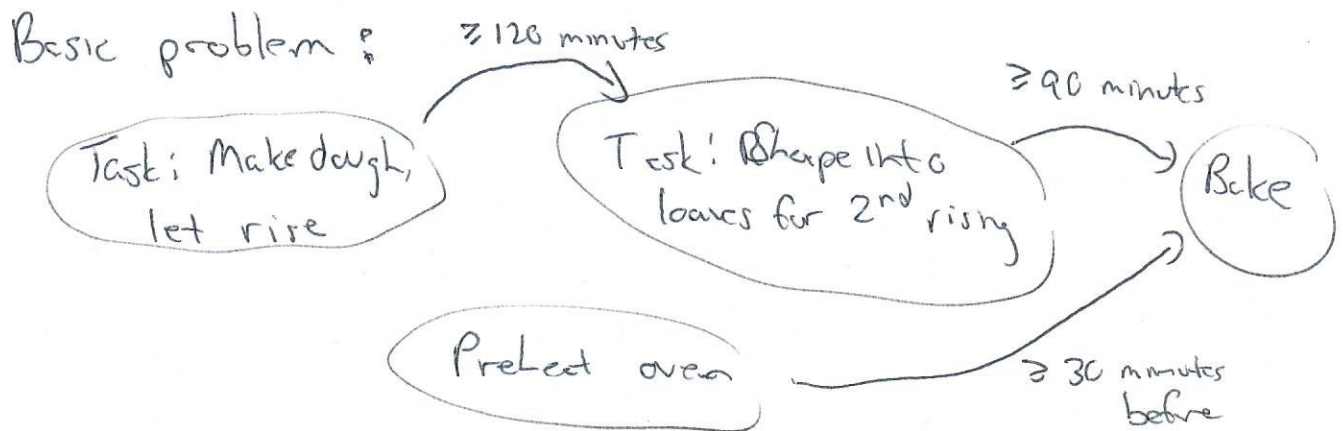 Basic problem:
≥120 minutes
≥90 minutes
Task: Make dough,
let rise
Task: Shape into
loaves for 2nd rising
Bake
Preheat oven
≥30 minutes
before